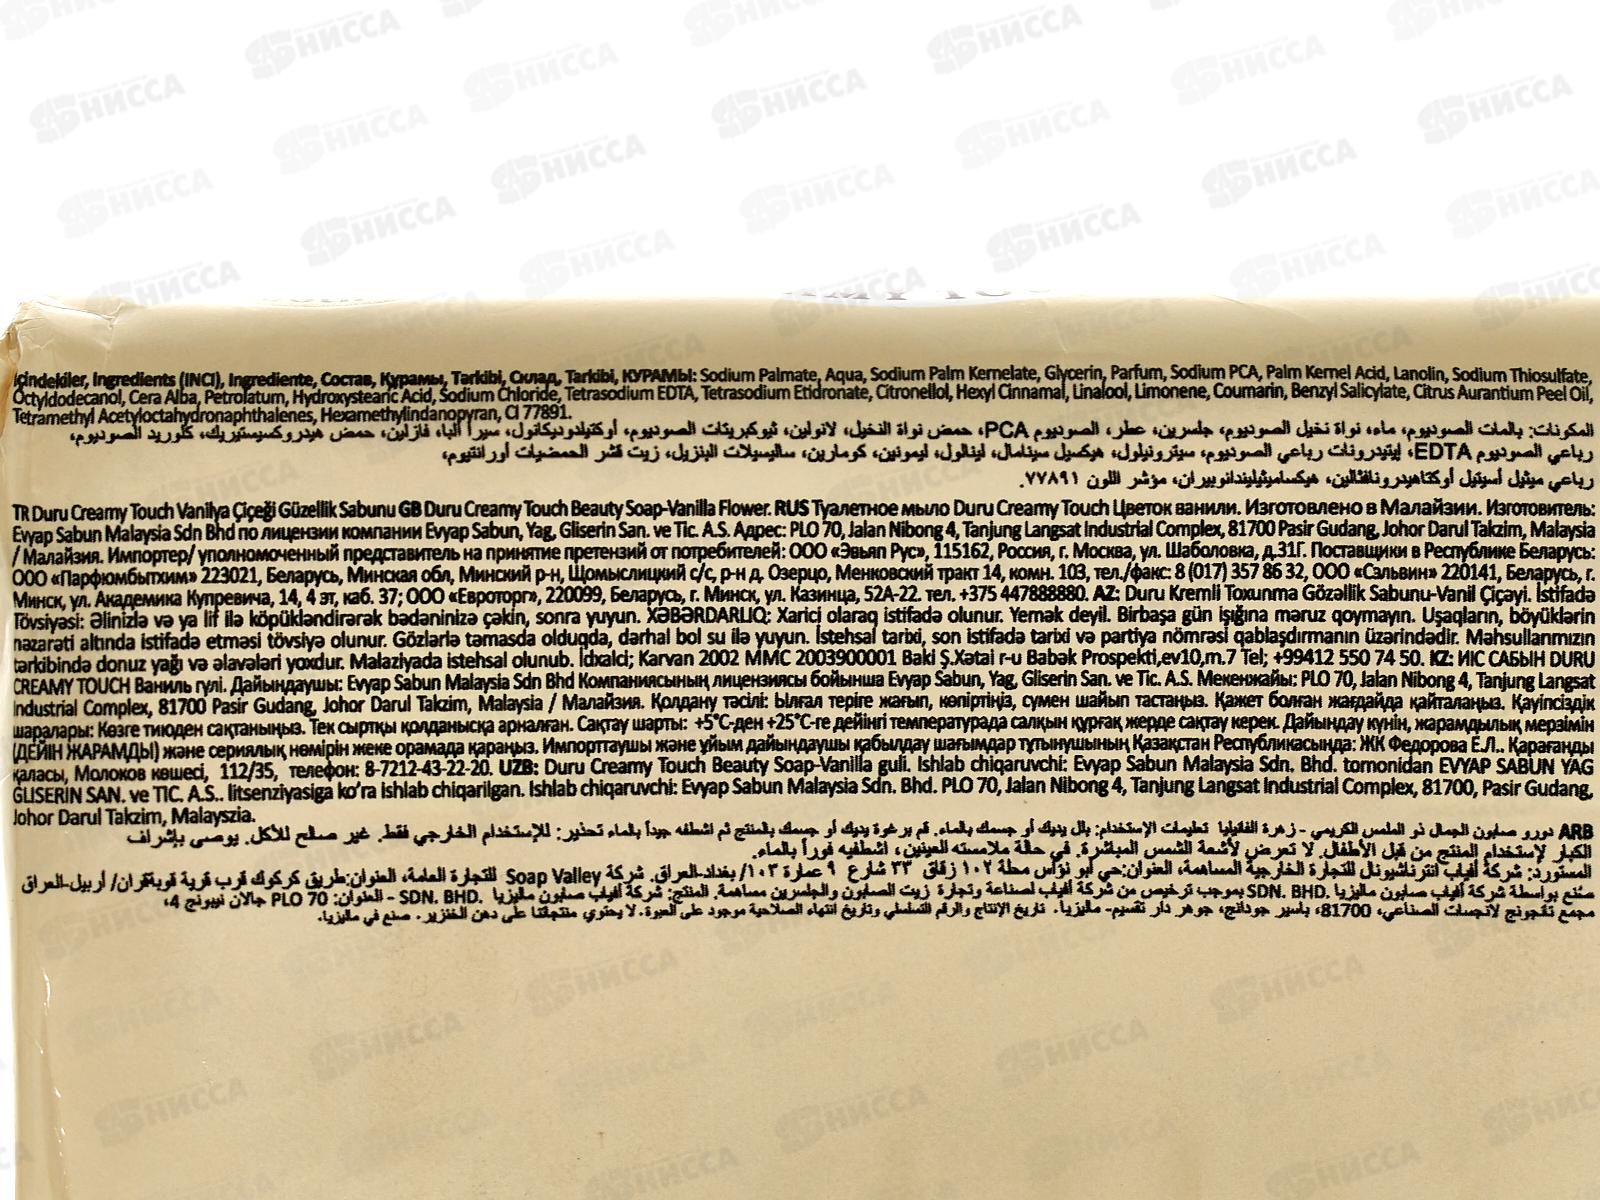 İçindekiler, Ingredients (INCI), Ingrediente, Состав, Құрамы, Tərkibi, Склад, Tarkibi, КУРАМЫ: Sodium Palmate, Aqua, Sodium Palm Kernelate, Glycerin, Parfum, Sodium PCA, Palm Kernel Acid, Lanolin, Sodium Thiosulfate,
Octyldodecanol, Cera Alba, Petrolatum, Hydroxystearic Acid, Sodium Chloride, Tetrasodium EDTA, Tetrasodium Etidronate, Citronellol, Hexyl Cinnamal, Linalool, Limonene, Coumarin, Benzyl Salicylate, Citrus Aurantium Peel Oil,
Tetramethyl Acetyloctahydronaphthalenes, Hexamethylindanopyran, CI 77891.
المكونات: بالمات الصوديوم، ماء، نواة نخيل الصوديوم، جلسرين، عطر، الصوديوم PCA، حمض نواة النخيل، لانولين، ثيوكبريتات الصوديوم، أوكتيلدوديكانول، سيرا ألبا، فازلين، حمض هيدروكسيستيريك، كلوريد الصوديوم،
رباعي الصوديوم EDTA، إيتيدرونات رباعي الصوديوم، سيترونيلول، هيكسيل سينامال، لينالول، ليمونين، كومارين، ساليسيلات البنزيل، زيت قشر الحمضيات أورانتيوم،
رباعي ميثيل أسيتيل أوكتاهيدرونافثالين، هيكساميثيليندانوبيران، مؤشر اللون ٧٧٨٩١.
TR Duru Creamy Touch Vanilya Çiçeği Güzellik Sabunu GB Duru Creamy Touch Beauty Soap-Vanilla Flower. RUS Туалетное мыло Duru Creamy Touch Цветок ванили. Изготовлено в Малайзии. Изготовитель:
Evyap Sabun Malaysia Sdn Bhd по лицензии компании Evyap Sabun, Yag, Gliserin San. ve Tic. A.S. Адрес: PLO 70, Jalan Nibong 4, Tanjung Langsat Industrial Complex, 81700 Pasir Gudang, Johor Darul Takzim, Malaysia
/ Малайзия. Импортер/ уполномоченный представитель на принятие претензий от потребителей: ООО «Эвьяп Рус», 115162, Россия, г. Москва, ул. Шаболовка, д.31Г. Поставщики в Республике Беларусь:
ООО «Парфюмбытхим» 223021, Беларусь, Минская обл, Минский р-н, Щомыслицкий с/с, р-н д. Озерцо, Менковский тракт 14, комн. 103, тел./факс: 8 (017) 357 86 32, ООО «Сэльвин» 220141, Беларусь, г.
Минск, ул. Академика Купревича, 14, 4 эт, каб. 37; ООО «Евроторг», 220099, Беларусь, г. Минск, ул. Казинца, 52А-22. тел. +375 447888880. AZ: Duru Kremli Toxunma Gözəllik Sabunu-Vanil Çiçəyi. İstifadə
Tövsiyəsi: Əlinizlə və ya lif ilə köpükləndirərək bədəninizə çəkin, sonra yuyun. XƏBƏRDARLIQ: Xarici olaraq istifadə olunur. Yemək deyil. Birbaşa gün işığına məruz qoymayın. Uşaqların, böyüklərin
nəzarəti altında istifadə etməsi tövsiyə olunur. Gözlərlə təmasda olduqda, dərhal bol su ilə yuyun. İstehsal tarixi, son istifadə tarixi və partiya nömrəsi qablaşdırmanın üzərindədir. Məhsullarımızın
tərkibində donuz yağı və əlavələri yoxdur. Malaziyada istehsal olunub. İdxalci; Karvan 2002 MMC 2003900001 Baki Ş.Xətai r-u Babək Prospekti,ev10,m.7 Tel; +99412 550 74 50. KZ: ИІС САБЫН DURU
CREAMY TOUCH Ваниль гүлі. Дайындаушы: Evyap Sabun Malaysia Sdn Bhd Компаниясының лицензиясы бойынша Evyap Sabun, Yag, Gliserin San. ve Tic. A.S. Мекенжайы: PLO 70, Jalan Nibong 4, Tanjung Langsat
Industrial Complex, 81700 Pasir Gudang, Johor Darul Takzim, Malaysia / Малайзия. Қолдану тәсілі: Ылғал теріге жағып, көпіртіңіз, сумен шайып тастаңыз. Қажет болған жағдайда қайталаңыз. Қауіпсіздік
шаралары: Көзге тиюден сақтаныңыз. Тек сыртқы қолданысқа арналған. Сақтау шарты: +5°С-ден +25°С-ге дейінгі температурада салқын құрғақ жерде сақтау керек. Дайындау күнін, жарамдылық мерзімін
(ДЕЙІН ЖАРАМДЫ) және сериялық нөмірін жеке орамада қараңыз. Импорттаушы және ұйым дайындаушы қабылдау шағымдар тұтынушының Қазақстан Республикасында: ЖК Федорова Е.Л.. Қарағанды
қаласы, Молоков көшесі, 112/35, телефон: 8-7212-43-22-20. UZB: Duru Creamy Touch Beauty Soap-Vanilla guli. Ishlab chiqaruvchi: Evyap Sabun Malaysia Sdn. Bhd. tomonidan EVYAP SABUN YAG
GLISERIN SAN. ve TIC. A.S.. litsenziyasiga ko'ra ishlab chiqarilgan. Ishlab chiqaruvchi: Evyap Sabun Malaysia Sdn. Bhd. PLO 70, Jalan Nibong 4, Tanjung Langsat Industrial Complex, 81700, Pasir Gudang,
Johor Darul Takzim, Malayszia.
ARB دورو صابون الجمال ذو الملمس الكريمي - زهرة الفانيليا تعليمات الإستخدام: بال يديك أو جسمك بالماء. قم برغوة يديك أو جسمك بالمنتج ثم اشطفه جيداً بالماء تحذير: للإستخدام الخارجي فقط. غير صالح للأكل. يوصى بإشراف
الكبار لإستخدام المنتج من قبل الأطفال. لا تعرض لأشعة الشمس المباشرة. في حالة ملامسته العينين، اشطفيه فوراً بالماء.
المستورد: شركة أفياب انترناشيونال للتجارة الخارجية المساهمة، العنوان:حي أبو نؤاس محلة ١٠٢ زقاق ٣٣ شارع ٩ عمارة ١٠٣/ بغداد-العراق. شركة Soap Valley للتجارة العامة، العنوان:طريق كركوك قرب قرية قوية‌قران/ أربيل-العراق
صنع بواسطة شركة أفياب صابون ماليزيا SDN. BHD. بموجب ترخيص من شركة أفياب لصناعة وتجارة زيت الصابون والجلسرين مساهمة. المنتج: شركة أفياب صابون ماليزيا SDN. BHD. - العنوان: PLO 70 جالان نيبونج 4،
مجمع تانجونج لانجسات الصناعي، 81700، باسير جودانج، جوهر دار تقسيم- ماليزيا. تاريخ الإنتاج والرقم التسلسلي وتاريخ انتهاء الصلاحية موجود على العبوة. لا يحتوي منتجاتنا على دهن الخنزير. صنع في ماليزيا.